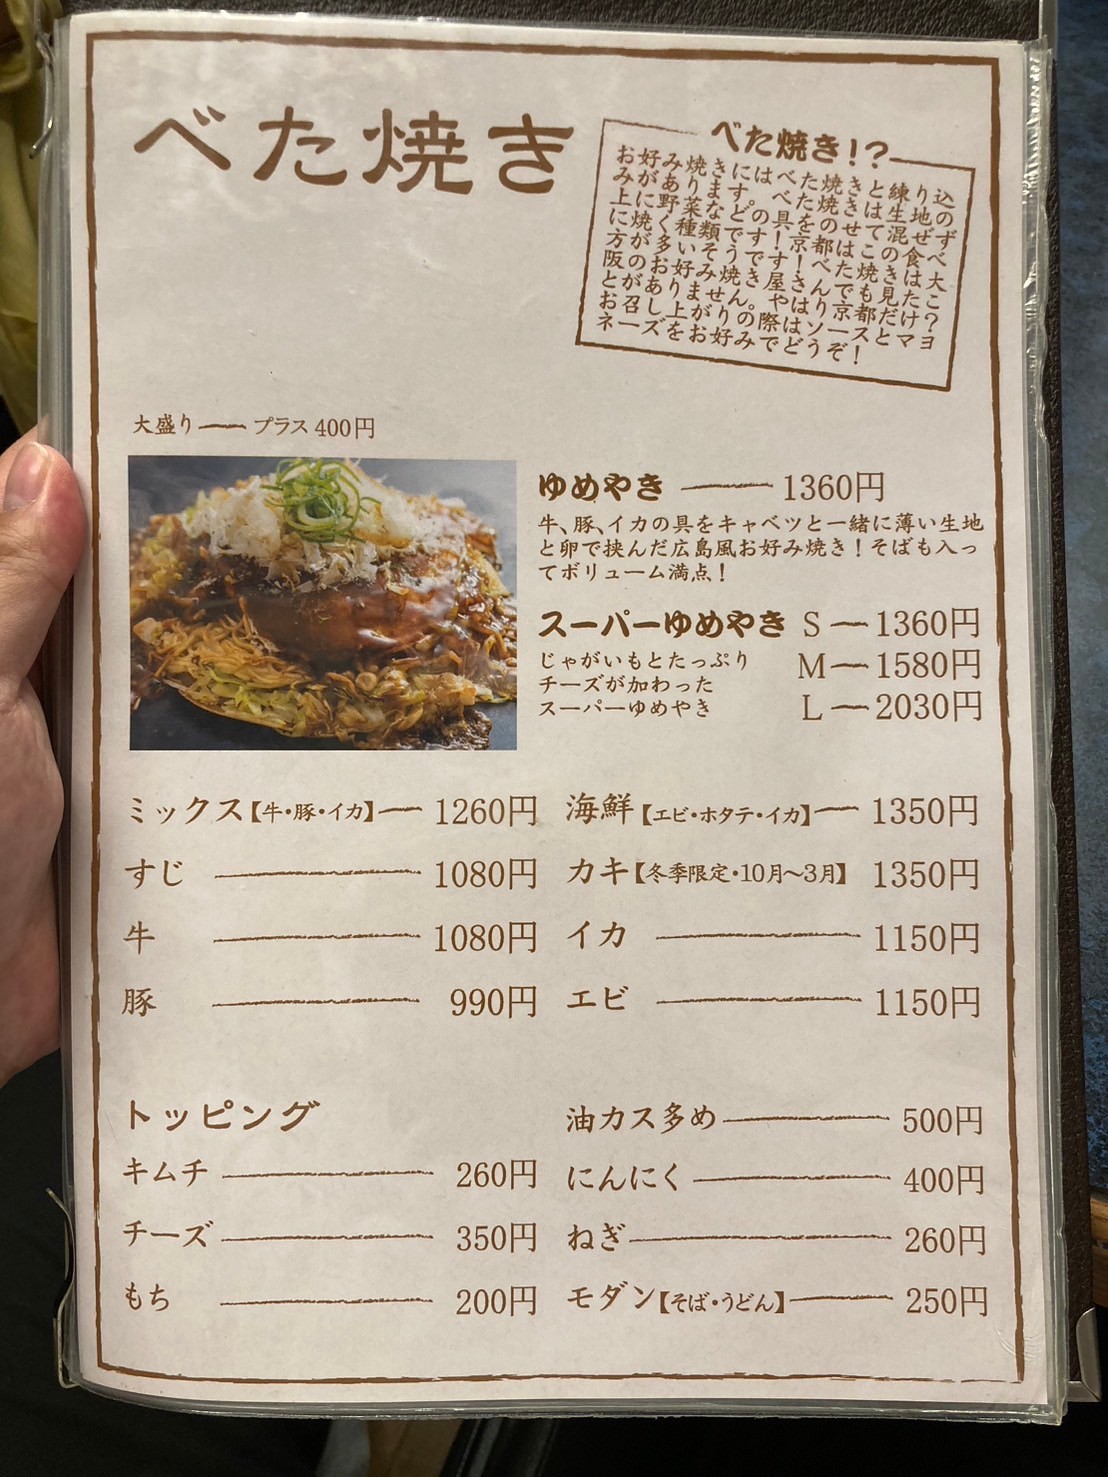 べた焼き
べた焼き!?
お好み焼きにはべた焼きと練り込
みがあります。べた焼きとは生地の
上に野菜などの具をのせて混ぜず
お召し上がりの際はソースとマヨ
ネーズをお好みでどうぞ!
大盛り プラス400円
ゆめやき 1360円
牛、豚、イカの具をキャベツと一緒に薄い生地
と卵で挟んだ広島風お好み焼き!そばも入っ
てボリューム満点!
スーパーゆめやき S 1360円
じゃがいもとたっぷり M 1580円
チーズが加わった
スーパーゆめやき L 2030円
ミックス【牛・豚・イカ】 1260円
すじ 1080円
牛 1080円
豚 990円
海鮮【エビ・ホタテ・イカ】 1350円
カキ【冬季限定・10月〜3月】 1350円
イカ 1150円
エビ 1150円
トッピング
キムチ 260円
チーズ 350円
もち 200円
油カス多め 500円
にんにく 400円
ねぎ 260円
モダン【そば・うどん】 250円